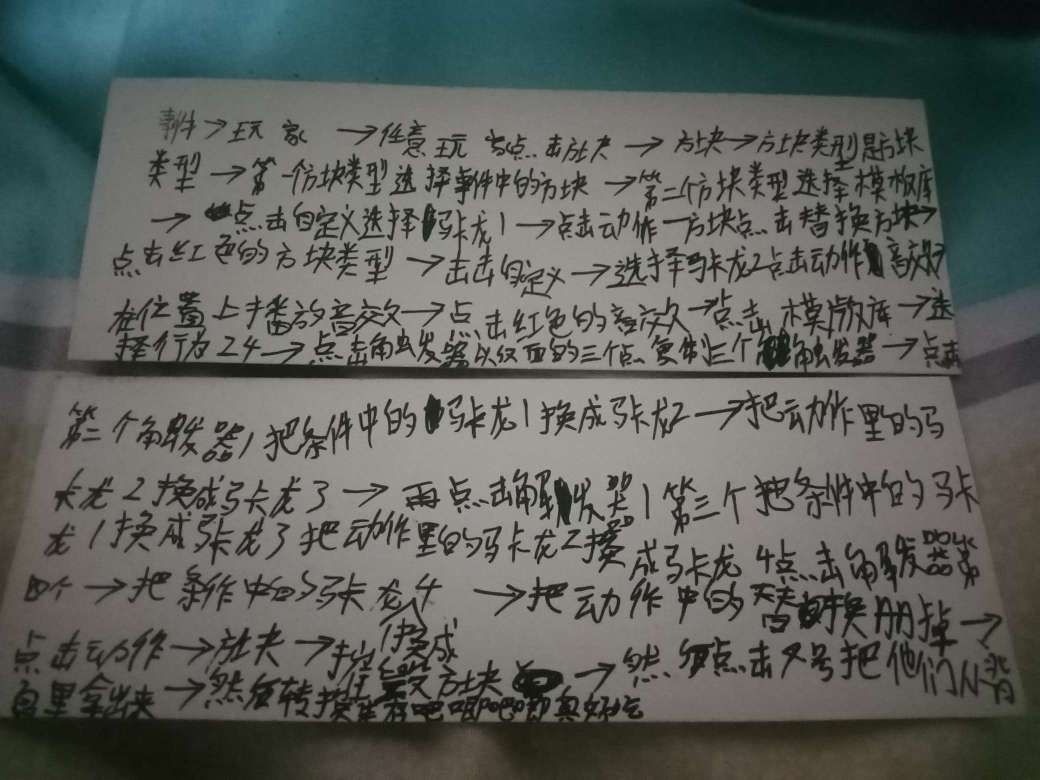 事件→玩家→任意玩家点击方块→方块→方块类型是方块
类型→第一个方块类型选择事件中的方块→第二个方块类型选择模板库
→点击自定义选择马卡龙1→点击动作一方块点击替换方块→
点击红色的方块类型→击击自定义→选择马卡龙2点击动作音效
在位置上播放音效→点击红色的音效→点击模版库→选
择行为24→点击触发器以后面的三个点复制三个触发器→点击
第二个触发器1把条件中的马卡龙1换成马卡龙2→把动作里的马
卡龙2换成马卡龙3→再点击触发器1第三个把条件中的马卡
龙1换成马卡龙3把动作里的马卡龙2换成马卡龙4点击触发器第
四个→把条件中的马卡龙4→把动作中的替换删掉→
点击动作→方块→换成
然后点击X号把他们从背
包里拿出来→然后转换生存吧唧吧唧真好吃